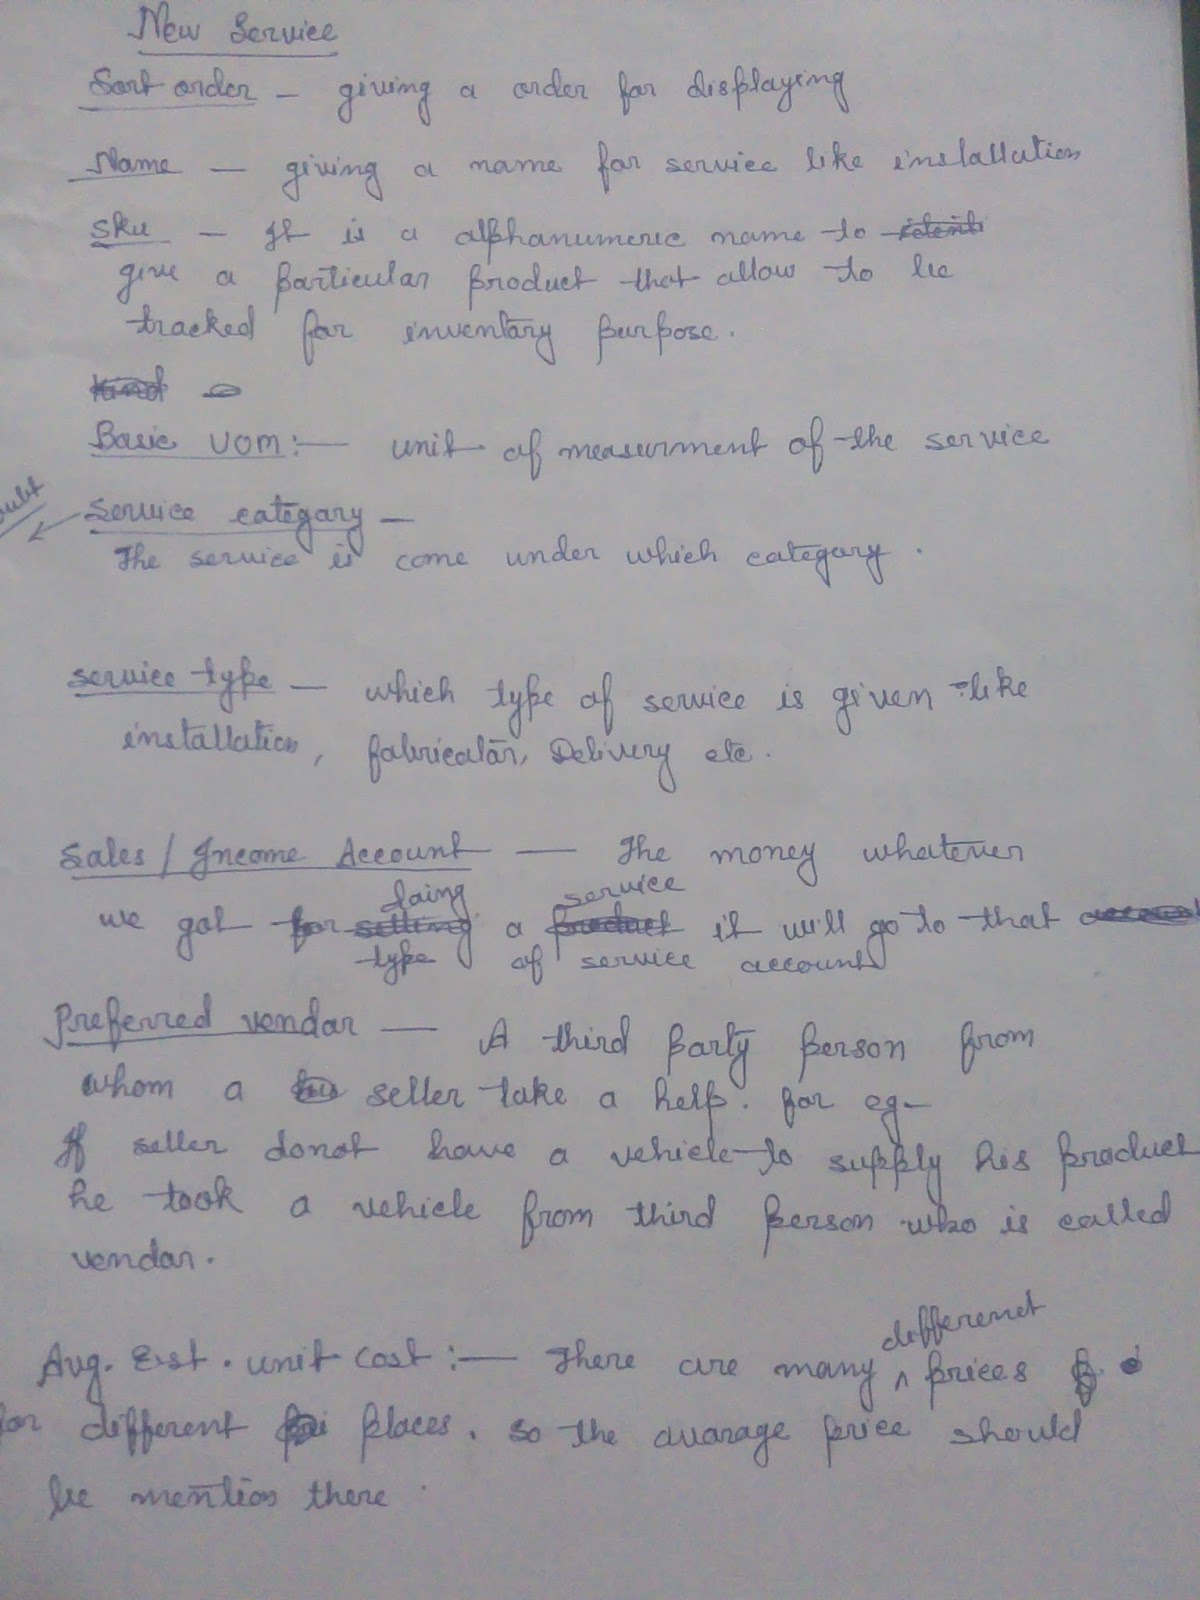 New Service
Sort order - giving a order for displaying
Name - giving a name for service like installation
Sku - It is a alphanumeric name to
give a particular product that allow to be
tracked for inventary purpose.
Kind
Basic UOM:- unit of measurment of the service
Service category -
The service is come under which category.
Service type - which type of service is given like
installation, fabricatār, Delivery etc.
Sales/Income Account - The money whatever
doing service
we got for selling a product it will go to that account
type of service account
Preferred vendar - A third party person from
whom a seller take a help. for eg-
If seller donot have a vehicle to supply his product
he took a vehicle from third person who is called
vendar.
differenet
Avg. Est. unit cost:- There are many ^ prices
for different places. so the avarage price should
be mention there.